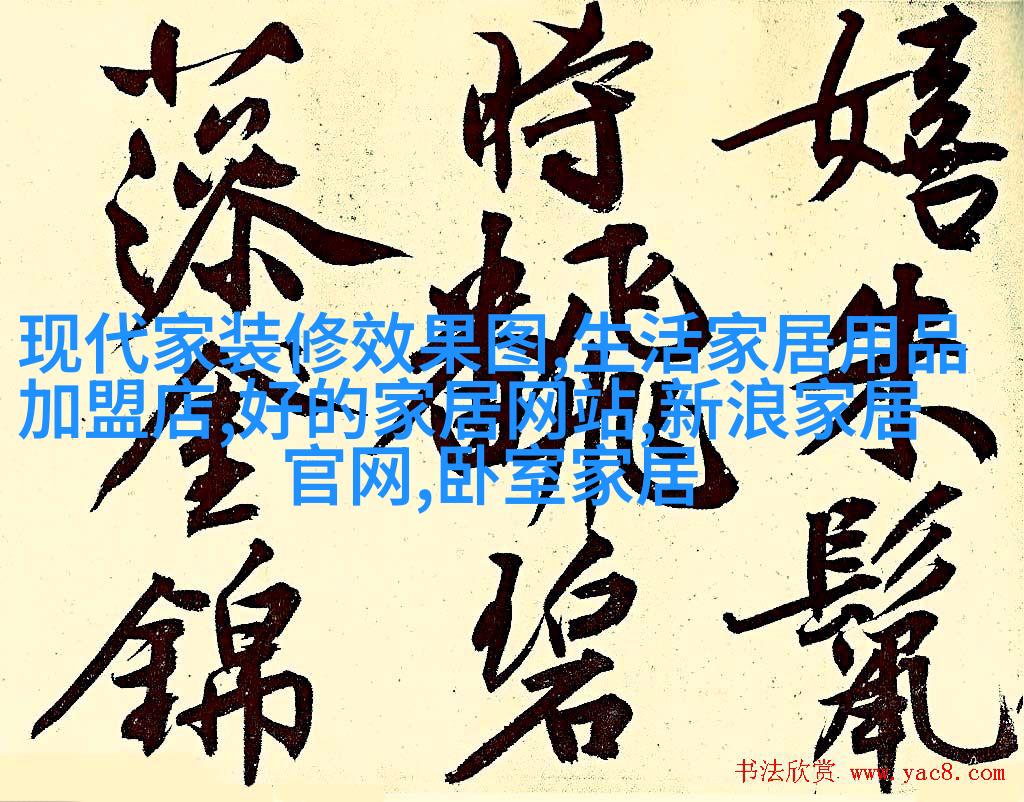 嬉朱鬣
時飜碧
藻錦
现代家装修效果图,生活家居用品
加盟店,好的家居网站,新浪家居
官网,卧室家居
书法欣赏 www.yac8.com